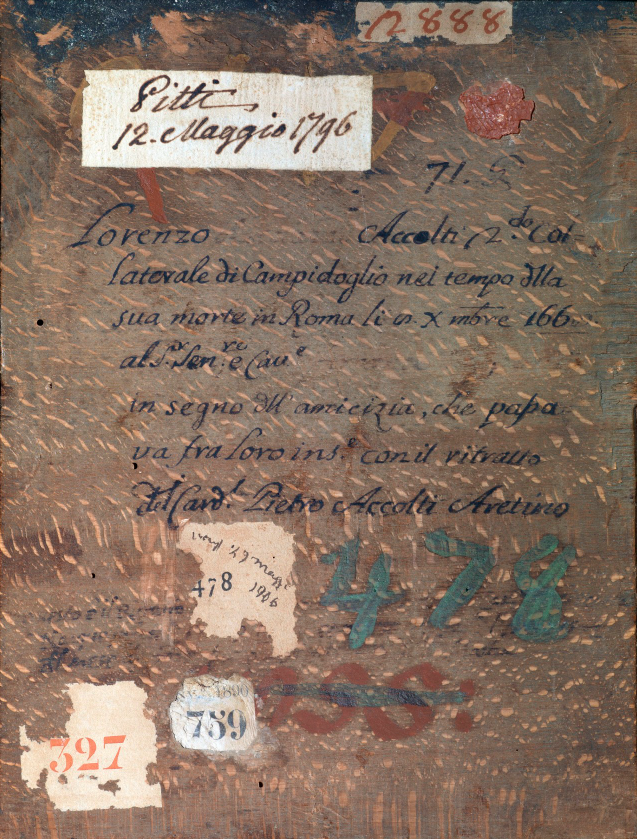 12888
Pitti
12. Maggio 1796
71.
Lorenzo Accolti 2.do Col-
laterale di Campidoglio nel tempo dlla
sua morte in Roma li X mbre 166
al S.r Sen.re e Cau.e
in segno dll' amicizia, che passa
va fra loro ins.e con il ritratto
del Card.l Pietro Accolti Aretino
478
1906
478
1890
759
327